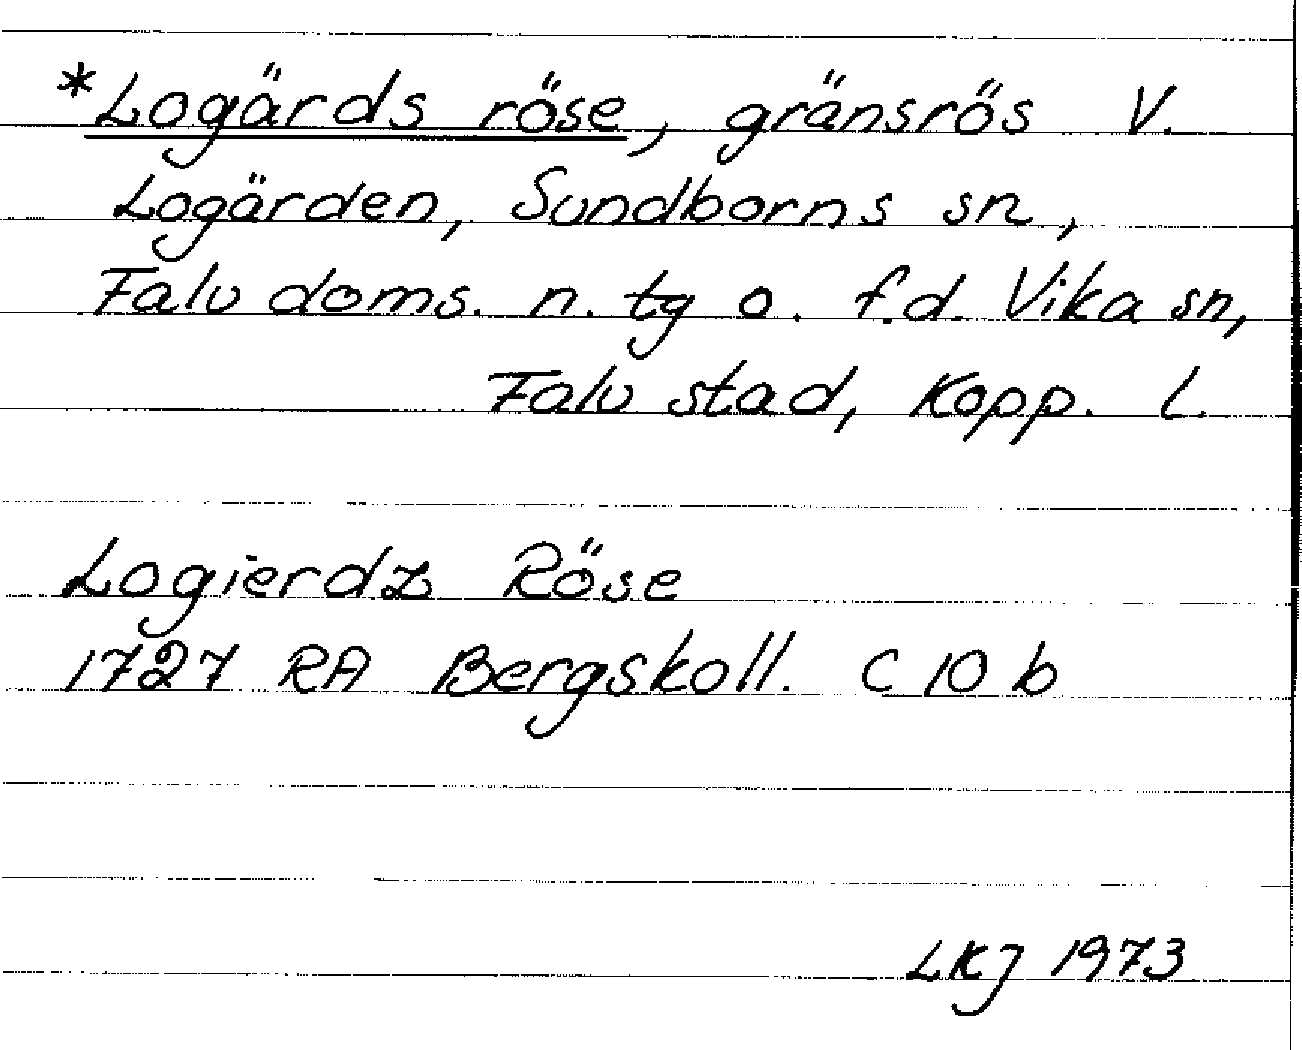 *Logärds röse, gränsrös V.
Logärden, Sundborns sn,
Falu doms. n. tg o. f.d. Vika sn,
Falu stad, Kopp. l.
Logierdz Röse
1727 RA Bergskoll. C 10 b
LKJ 1973